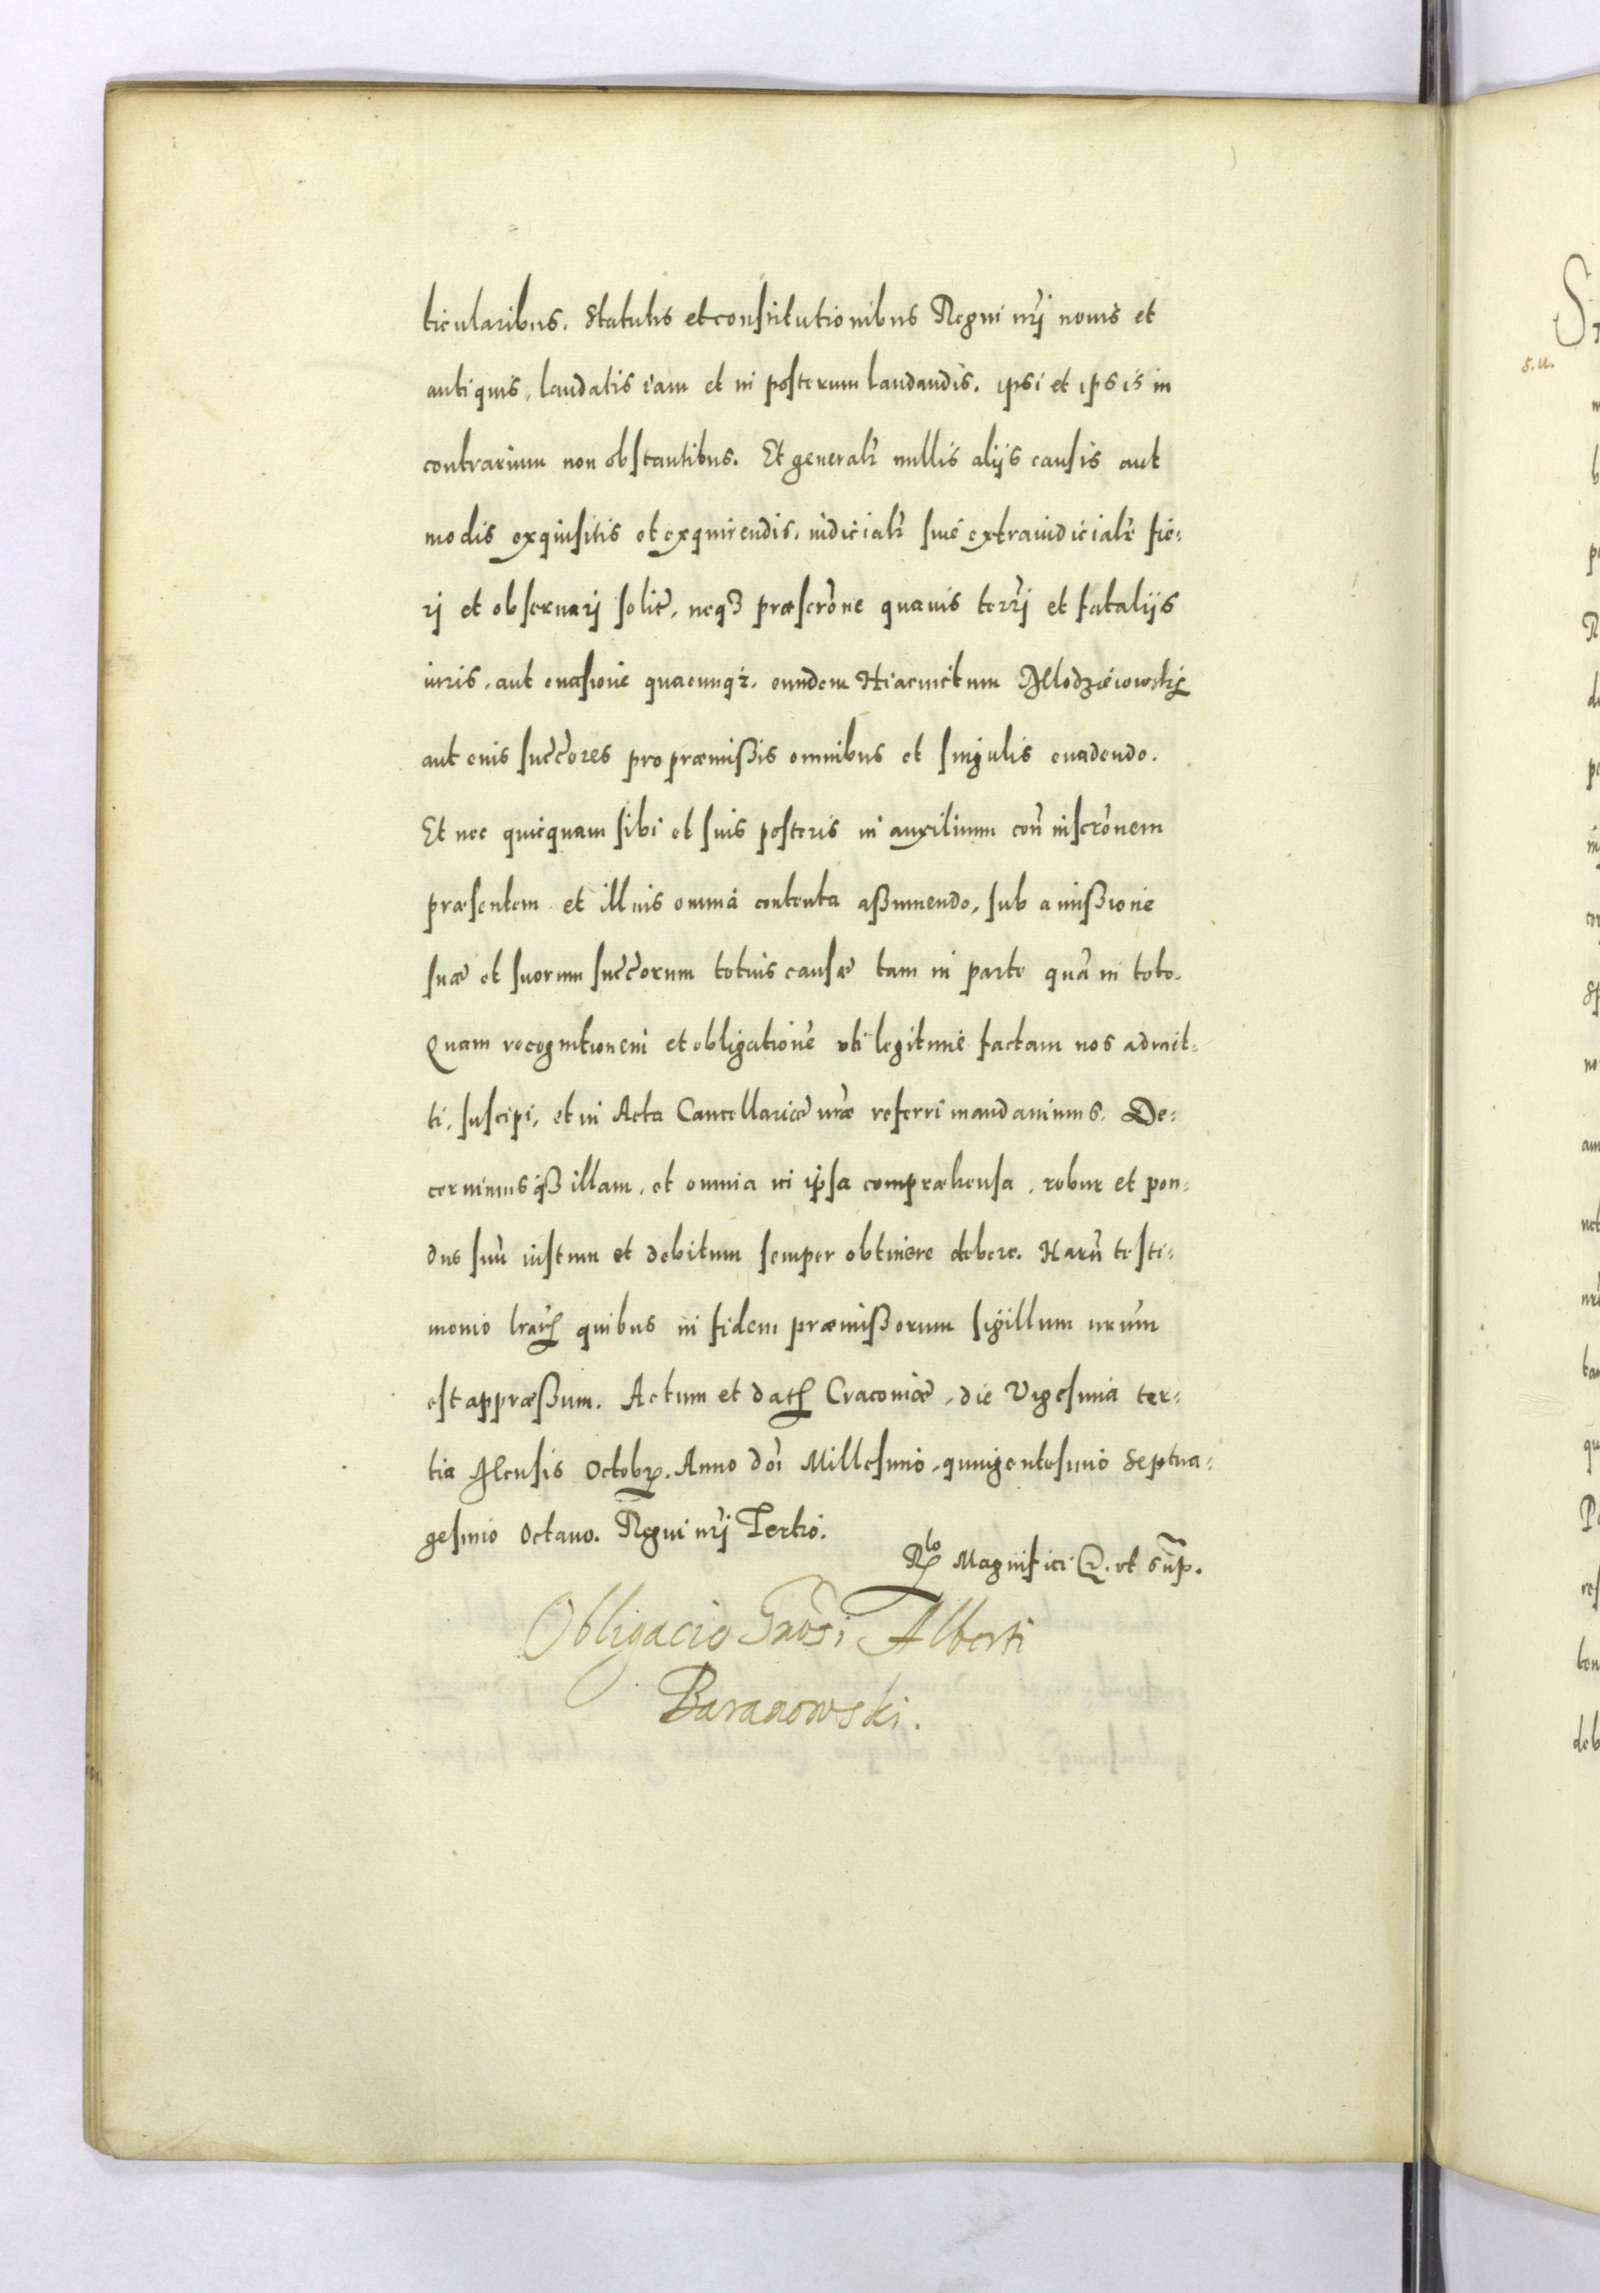 ticularibus. Statutis et constitutionibus Regni nr̃i nouis et
antiquis, laudatis iam et in posterum laudandis. ipsi et ipsis in
contrarium non obstantibus. Et generalr̃ nullis alijs causis aut
modis exquisitis et exquirendis, iudicialr̃ siue extraiudicialr̃ fie=
rj et obseruarj solit̃, neqȝ præscrõne quauis terrj et fatalijs
iuris, aut euasione quacunqȝ, eundem Hiacinctum Mlodzieiowskj
aut eius succ̃ores pro præmißis omnibus et singulis euadendo.
Et nec quicquam sibi et suis posteris in auxilium coñ inscrõnem
præsentem et illius omnia contenta aßumendo, sub amißione
suæ et suorum succ̃orum totius causæ tam in parte quã in toto.
Quam recognitionem et obligationẽ vti legitime factam nos admit=
ti, suscipi, et in Acta Cancellariæ nr̃æ referri mandauimus. De=
cernimusqȝ illam, et omnia in ipsa compræhensa, robur et pon=
dus suũ iustum et debitum semper obtinere debere. Harũ testi=
monio lr̃arꝝ quibus in fidem præmißorum sigillum nr̃um
est appræßum. Actum et datꝝ Cracouiæ, die Vigesima ter=
tia Mensis Octobr̃. Anno doĩ Millesimo, quingentesimo Septua=
gesimo Octauo. Regni nr̃j Tertio.
Rlo Magnifici &. vt sup̃.
Obligacio Gñosi Alberti
Baranowski.
S.U.